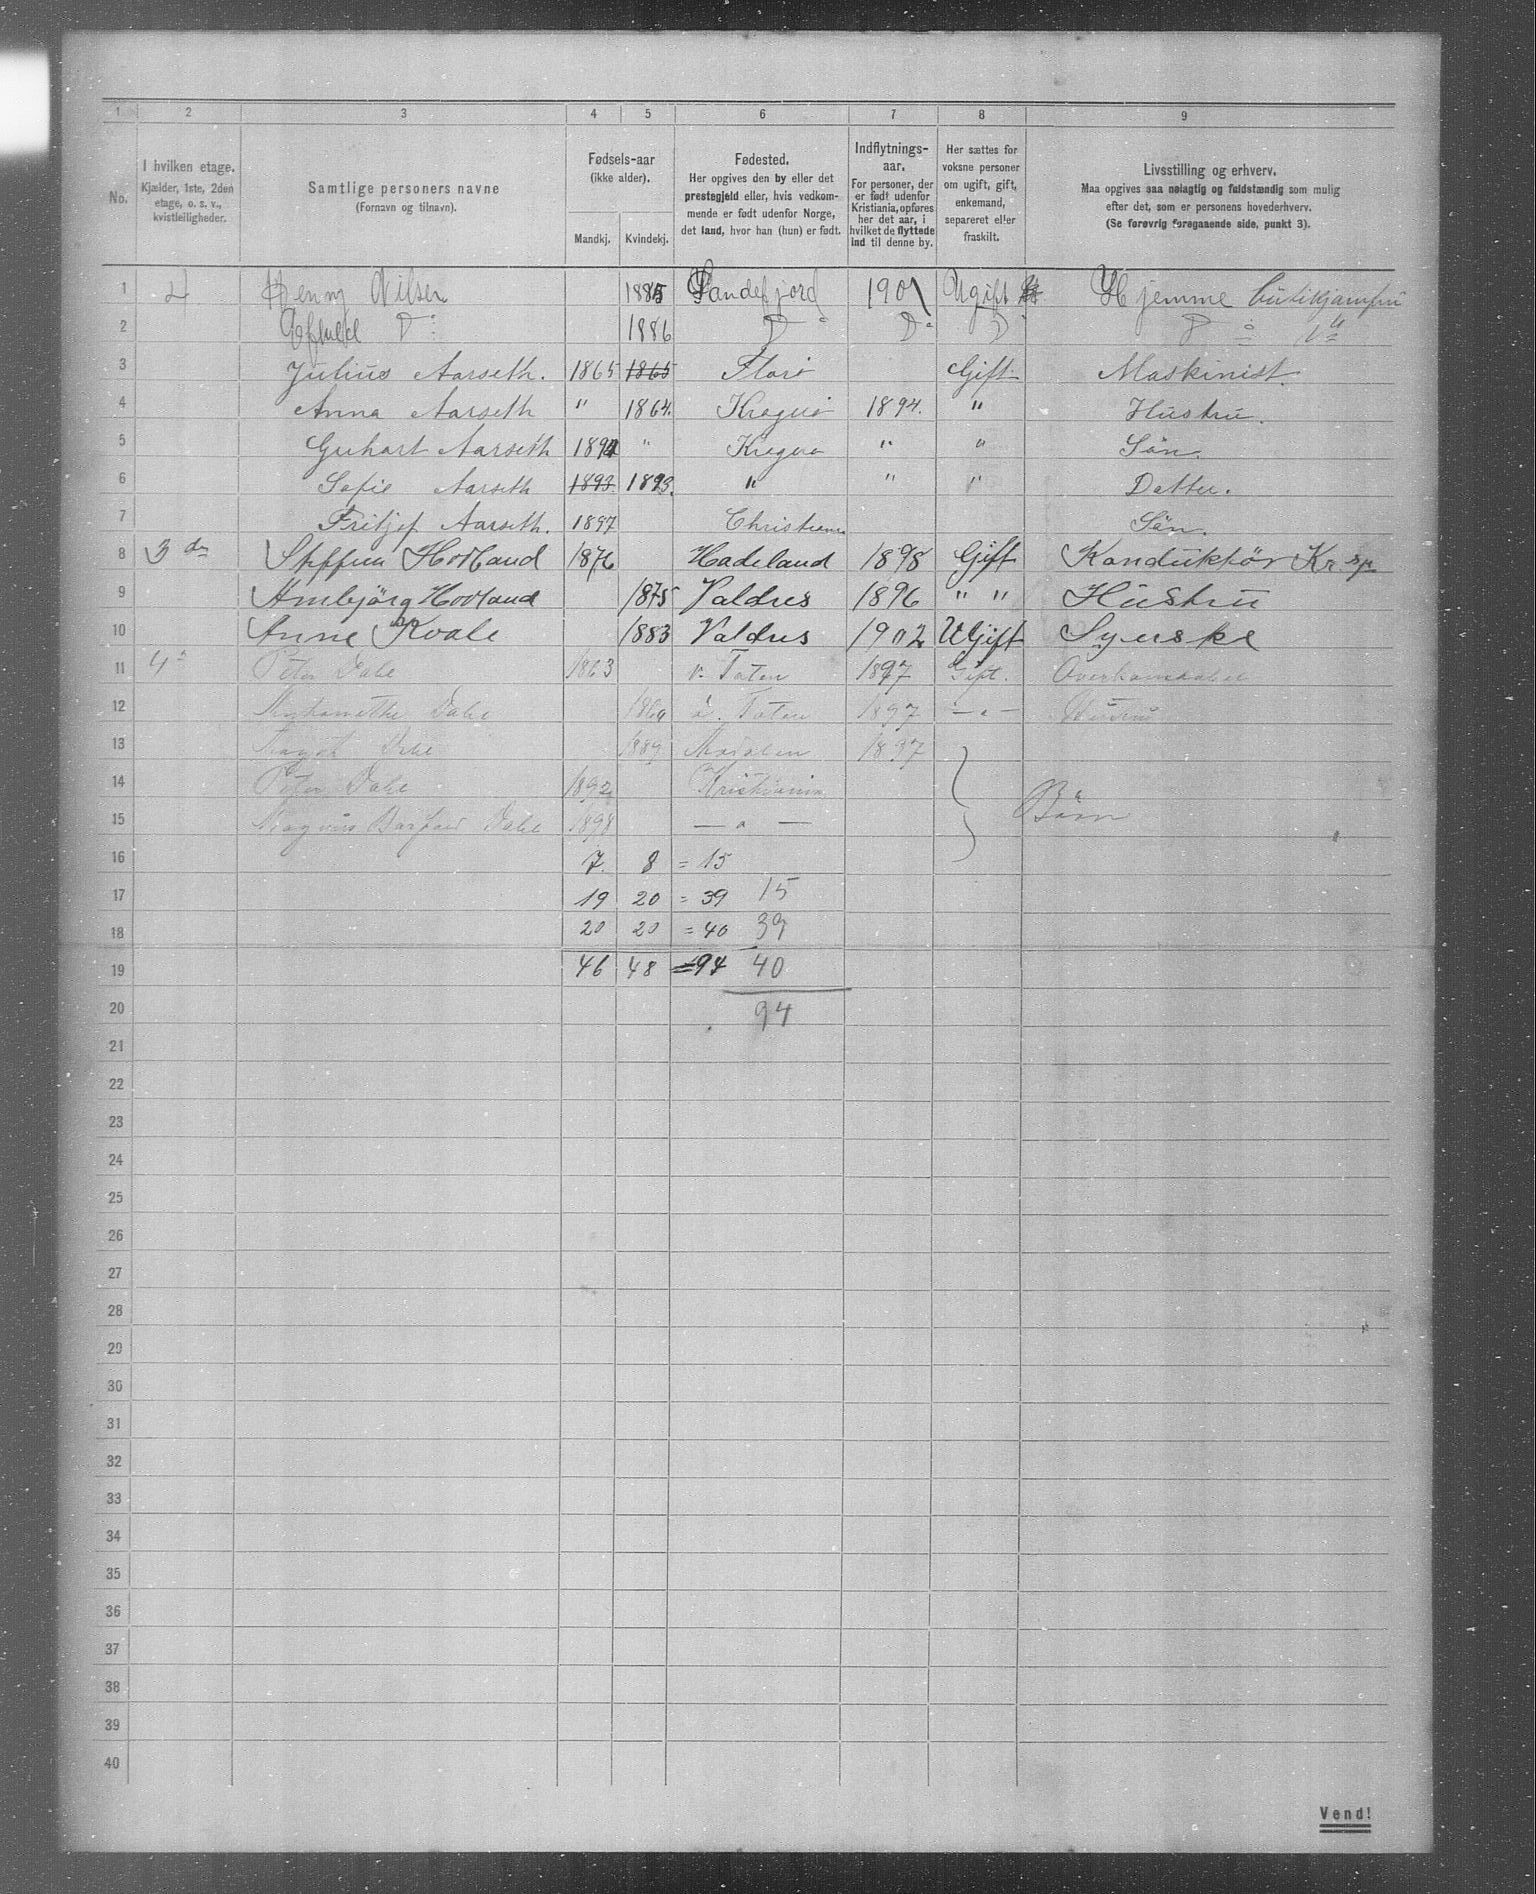 1 2 3 4 5 6 7 8 9
No.
I hvilken etage.
Kjælder, 1ste, 2den
etage, o. s. v.,
kvistleiligheder.
Samtlige personers navne
(Fornavn og tilnavn).
Fødsels-aar
(ikke alder).
Mandkj. Kvindekj.
Fødested.
Her opgives den by eller det
prestegjeld eller, hvis vedkom-
mende er født udenfor Norge,
det land, hvor han (hun) er født.
Indflytnings-
aar.
For personer, der
er født udenfor
Kristiania, opføres
her det aar, i
hvilket de flyttede
ind til denne by.
Her sættes for
voksne personer
om ugift, gift,
enkemand,
separeret eller
fraskilt.
Livsstilling og erhverv.
Maa opgives saa nøiagtig og fuldstændig som mulig
efter det, som er personens hovederhverv.
(Se forøvrig foregaaende side, punkt 3).
1 2 Henny Nilsen 1885 Sandefjord 1901 Ugift Hjemme
2 D: 1886 D: D: D: D:
3 Julius Aarseth. 1865 1865 Florø Gift Maskinist.
4 Anna Aarseth " 1864. Kragerø 1894. " Hustru.
5 Aarseth 1891 " Kragerø " " Sön.
6 Sofie Aarseth 1893 1893. " " " Datter.
7 Fritjof Aarseth. 1897 Christiania Sön.
8 3die Steffen Hovland 1876 Hadeland 1898 Gift Konduktör Kr. sp
9 Ambjörg Hovland 1875 Valdres 1896 " " Hustru
10 Anne Kvale 1883 Valdres 1902 UGift Syerske
11 4 Peter Dahl 1863 v. Toten 1897 Gift.
12 Dahl ö. Toten 1897 — " — Hustru
13 Dahl 1889 1897
14 Peter Dahl 1892 Kristiania Börn
15 Magnus Dahl 1898 — " —
16 7. 8 = 15
17 19 20 = 39 15
18 20 20 = 40 39
19 46 48 = 94 40
20 94
21
22
23
24
25
26
27
28
29
30
31
32
33
34
35
36
37
38
39
40
Vend!